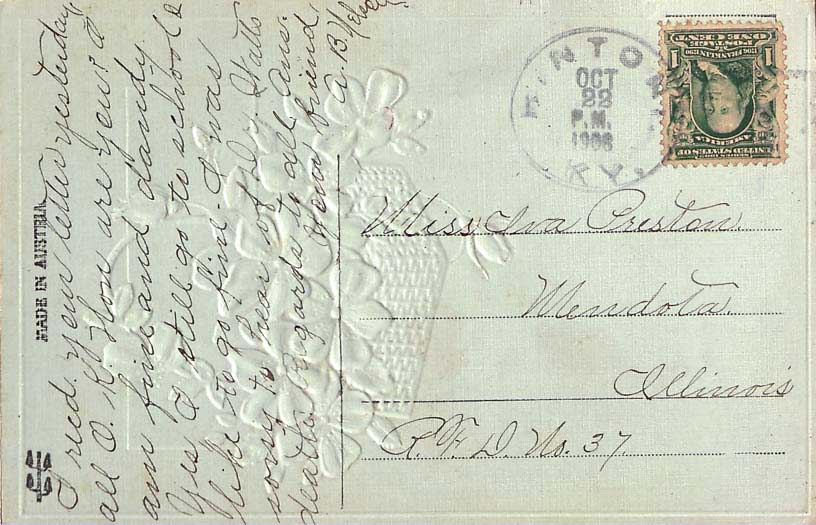 I recd. your letter yesterday
all O.K. How are you? I
am fine and dandy
Yes I still go to school &
like to go fine. I was
sorry to hear of Dr. Watts
death. Regards to all. Ans.
Your friend,
A. B.
MADE IN AUSTRIA
HINTON
OCT
22
P.M.
1908
KY.
1 1
POSTAGE
ONE CENT
FRANKLIN
UNITED STATES OF
AMERICA
Miss Iva Preston.
Mendota.
Illinois
R. F. D. No. 37.